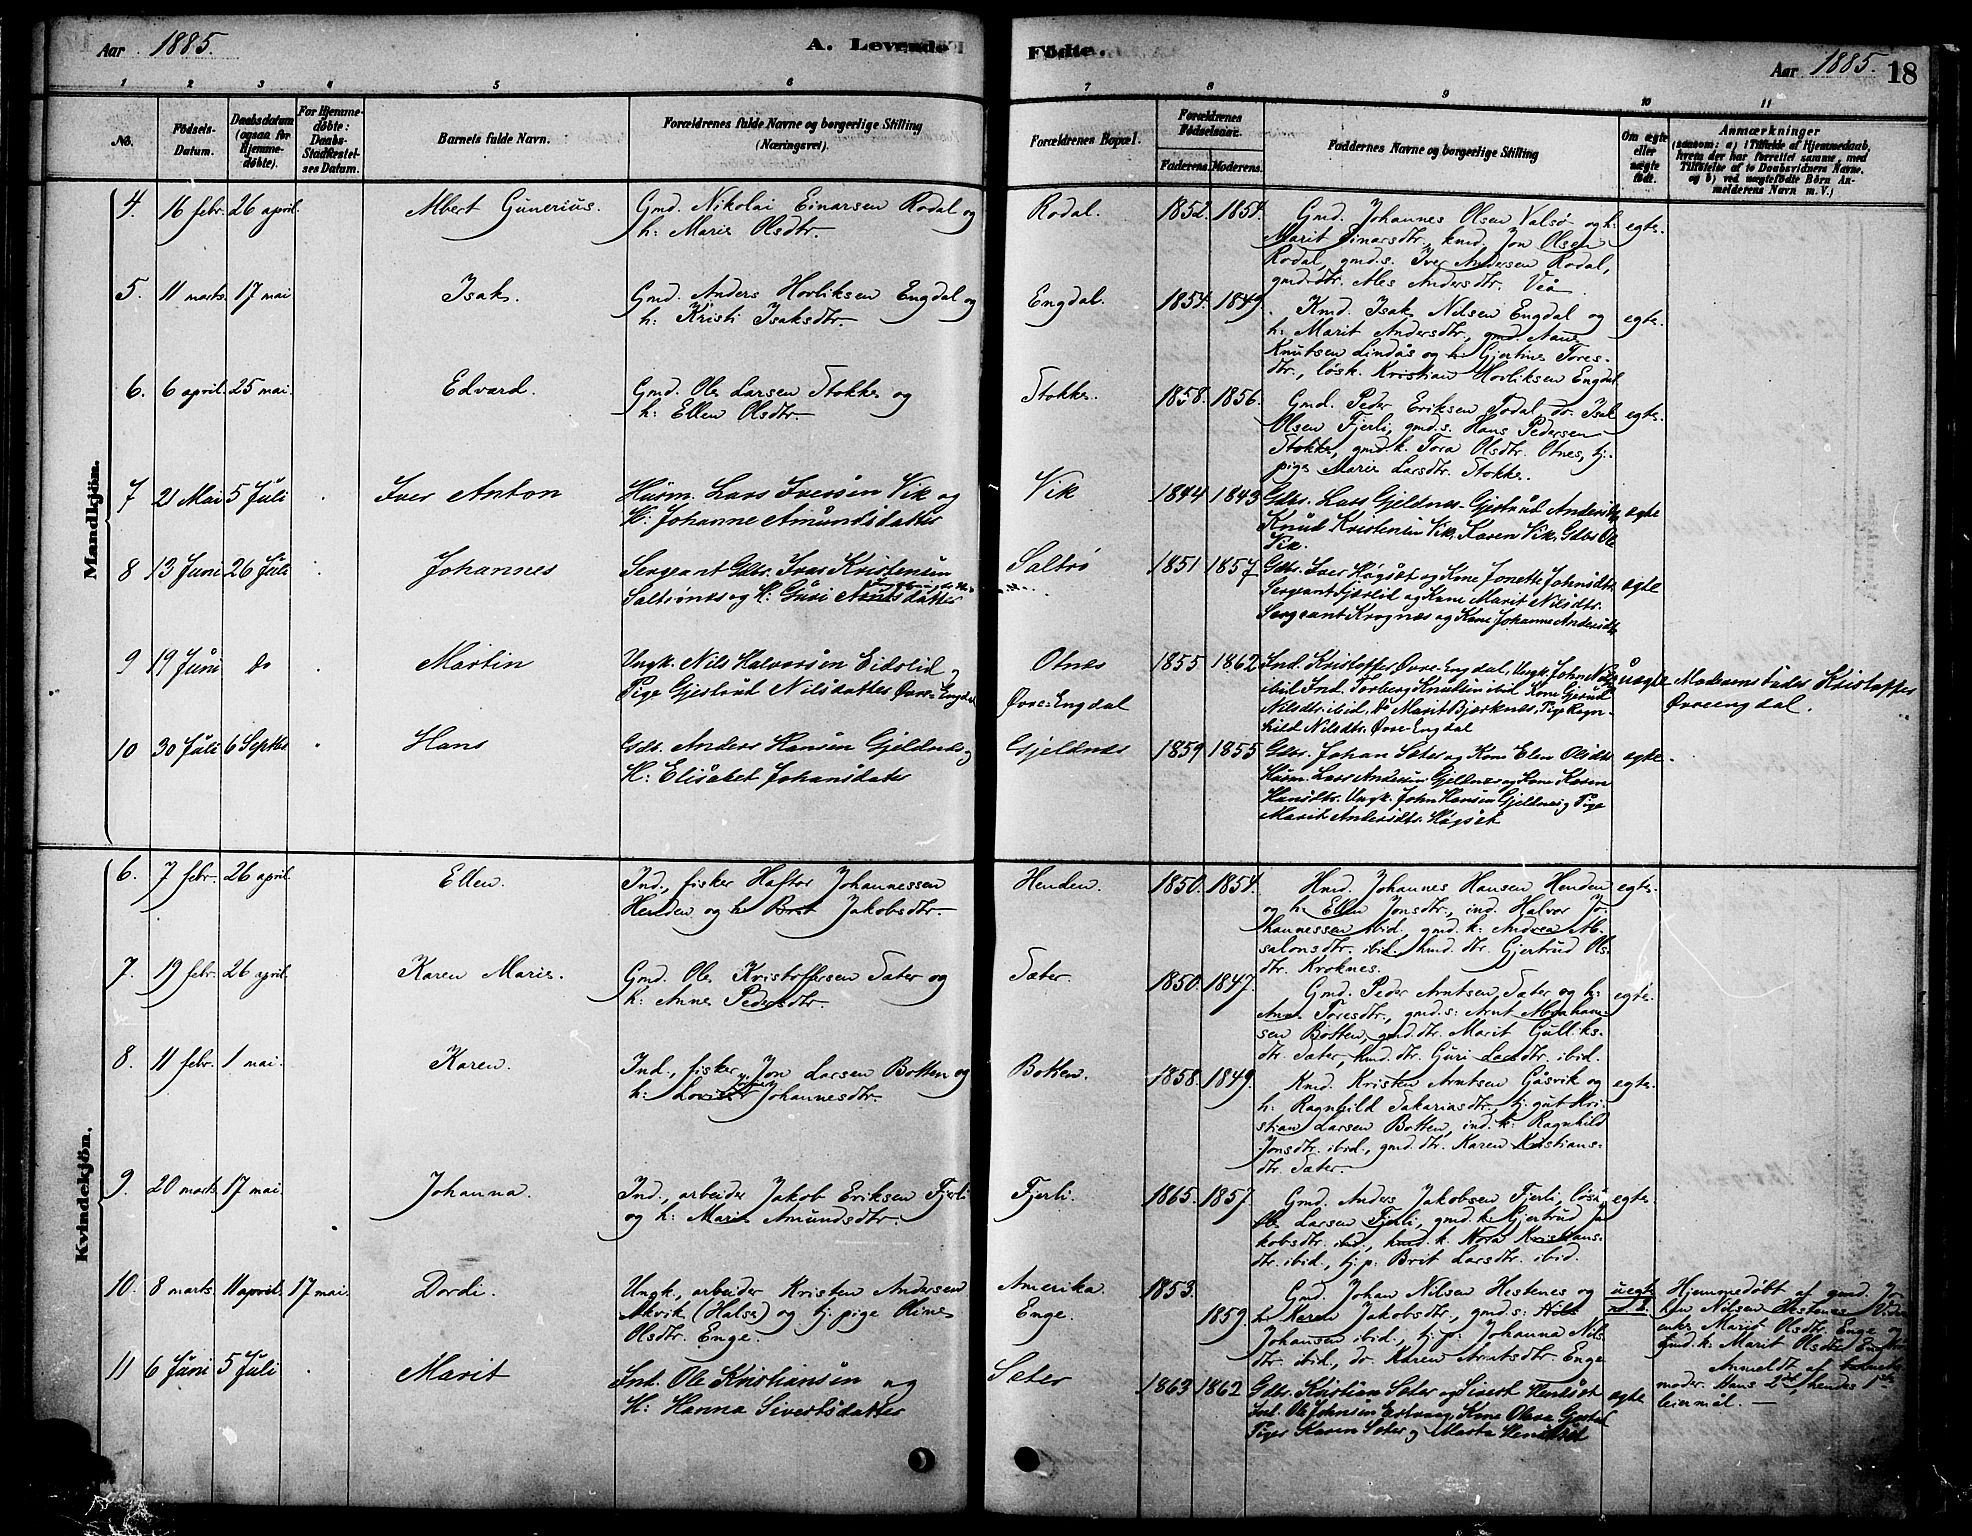 Aar 1885.
A. Levende Fødte.
Aar 1885. 18
1 2 3 4 5 6 7 8 9 10 11
No.
Fødsels-Datum.
Daabsdatum (ogsaa for Hjemmedøbte).
For Hjemmedøbte: Daabs-Stadfæstelses Datum.
Barnets fulde Navn.
Forældrenes fulde Navne og borgerlige Stilling (Næringsvei).
Forældrenes Bopæl.
Forældrenes Fødselsaar.
Faderens. Moderens.
Faddernes Navne og borgerlige Stilling
Om ægte eller uægte født.
Anmærkninger
(saasom: a) i Tilfælde af Hjemmedaab, hvem der har forrettet samme, med Tilføielse af to Daabsvidners Navne, og b) ved uægtefødte Børn Anmelderens Navn m. V.)
Mandkjön.
4. 16 febr. 26 april. Albert Gunerius. Gmd. Nikolai Einarsen Rodal og
h: Marie Olsdtr. Rodal. 1852. 1854. Gmd. Johannes Olsen Valsø og h: egte.
Marit Einarsdtr., kmd. Jon Olsen
Rodal, gmd.s. Iver Andersen Rodal,
gmd.dtr. Ales Andersdtr. Veå
5. 11 marts. 17 mai Isak. Gmd. Anders Hovliksen Engdal og
h: Kristi Isaksdtr. Engdal. 1854. 1849. Kmd. Isak Nilsen Engdal og egte.
h: Marit Andersdtr., gmd. Aane
Knutsen Lindås og h: Gjertine Tores-
dtr., løsk. Kristian Hovliksen Engdal
6. 6 april. 25 mai. Edvard. Gmd. Ole Larsen Stokke og
h: Ellen Olsdtr. Stokke. 1858. 1856. Gmd. Peder Eriksen Todal, do. Isak egte.
Olsen Fjerli, gmd.s. Hans Pedersen
Stokke, gmd.k. Tora Olsdtr. Otnes, tj.
pige Marie Larsdtr. Stokke.
7 21 Mai 5 Juli Iver Anton Husm. Lars Iversen Vik og
H: Johanne Amundsdatter Vik 1844 1843 Gdbr. Lars Gjeldnes. Gjertrud Andersdtr ægte
Knud Kristensen Vik, Karen Vik, Gdbr Ole
Vik.
8 13 Juni 26 Juli Johannes Sergeant Gdbr. Ivar Kristensen
Saltrönes og H: Guri Arntsdatter Saltrø 1851 1857 Gdbr. Iver Høgset og Kone Jonette Johnsdtr. ægte
Sergeant Fjærlid og Kone Marit Nilsdtr.
Sergeant Krognæs og Kone Johanne Andersdtr
9 19 Juni do Martin Ungk. Nils Halvorsen Eidslid og
Pige Gjertrud Nilsdatter Øvre-Engdal Otnes
Øvre-Engdal 1855 1862 Ind. Kristoffer Øvre-Engdal, Ungk. John uægte Moderens Fader Kristoffer
ibid Ind. Torberg Knutsen ibid Kone Gjerud Øvreengdal.
Nilsdtr. ibid, do Marit Bjerknes, Pige Ragn-
hild Nilsdtr. Øvre-Engdal
10 30 Juli 6 Septbr Hans Gdb. Anders Hansen Gjeldnes og
H: Elisabet Johansdatter Gjeldnes 1859 1855 Gdbr. Johan Sæter og Kone Elen Olsdtr ægte.
Husm. Lars Andersen Gjeldnes og Kone Karen
Hansdtr. Ungk. John Hansen Gjeldnes, Pige
Marit Andersdtr. Høgset
Kvindekjön.
6. 7 febr. 26 april. Ellen. Ind., fisker Haftor Johannessen
Henden og h: Brit Jakobsdtr. Henden. 1850. 1854. Hmd. Johannes Hansen Henden egte.
og h: Ellen Jonsdtr., ind. Halvor Jo-
hannessen ibid., gmd.k: Andrea Ab-
salonsdtr. ibid. hmd. dtr. Gjertrud Ols-
dtr. Kroknes.
7. 19 febr. 26 april. Karen Marie. Gmd. Ole Kristoffersen Sæter og
h: Anne Pedersdtr. Sæter. 1850. 1847. Gmd. Peder Arntsen Sæter og h: egte.
Ane Toresdtr., gmd.s: Arnt Abraham-
sen Botten, gmd.dtr. Marit Gulliks-
dtr. Sæter, hmd. dtr. Guri Larsdtr. ibid.
8. 11 febr. 1 mai. Karen. Ind., fisker Jon Larsen Botten og
h: Johannesdtr. Botten. 1858. 1849. Kmd. Kristen Arntsen Gåsvik og egte.
h: Ragnhild Sakariasdtr., tj. gut Kri-
stian Larsen Botten, ind. k: Ragnhild
Jonsdtr. ibid., gmd. dtr. Karen Kristians-
dtr. Sæter.
9. 20 marts. 17 mai. Johanna. Ind., arbeider Jakob Eriksen Fjerli
og h: Marie Amundsdtr. Fjerli. 1865. 1857. Gmd. Anders Jakobsen Fjerli, løsk. egte.
Ole Larsen Fjerli, gmd. k. Gjertrud Ja-
kobsdtr. ibid, hmd. k. Nora Kristians-
dtr. ibid., tj. p: Brit Larsdtr. ibid.
10. 8 marts. 11 april. 17 mai. Dordi. Ungk., arbeider Kristen Andersen
Akvik (Halse) og tj. pige Oline
Olsdtr. Enge. Amerika
Enge. 1853.
1859. Gmd. Johan Nilsen Hestenes og uegte Hjemmedøbt af gmd. Jo-
h: Karen Jakobsdtr., gmd.s: Nils han Nilsen Hestenes. Vidn:
Johansen ibid., tj. p: Johanna Nils- enke Marit Olsdtr. Enge og
dtr. ibid., do. Karen Arntsdtr. Enge gmd.k: Marit Olsdtr. Enge
Anmeldt af barnets
moder. Hans 2det, hendes 1ste
leiermål. —
11 6 Juni 5 Juli Marit Ind. Ole Kristiansen og
H: Hanna Sivertsdatter Seter 1863 1862 Gdbr. Kristian Seter og Sivert Henkset ægte
Ind. Ole Johnsen, Kone Olava
Piger Karen Seter og Marta Henkset